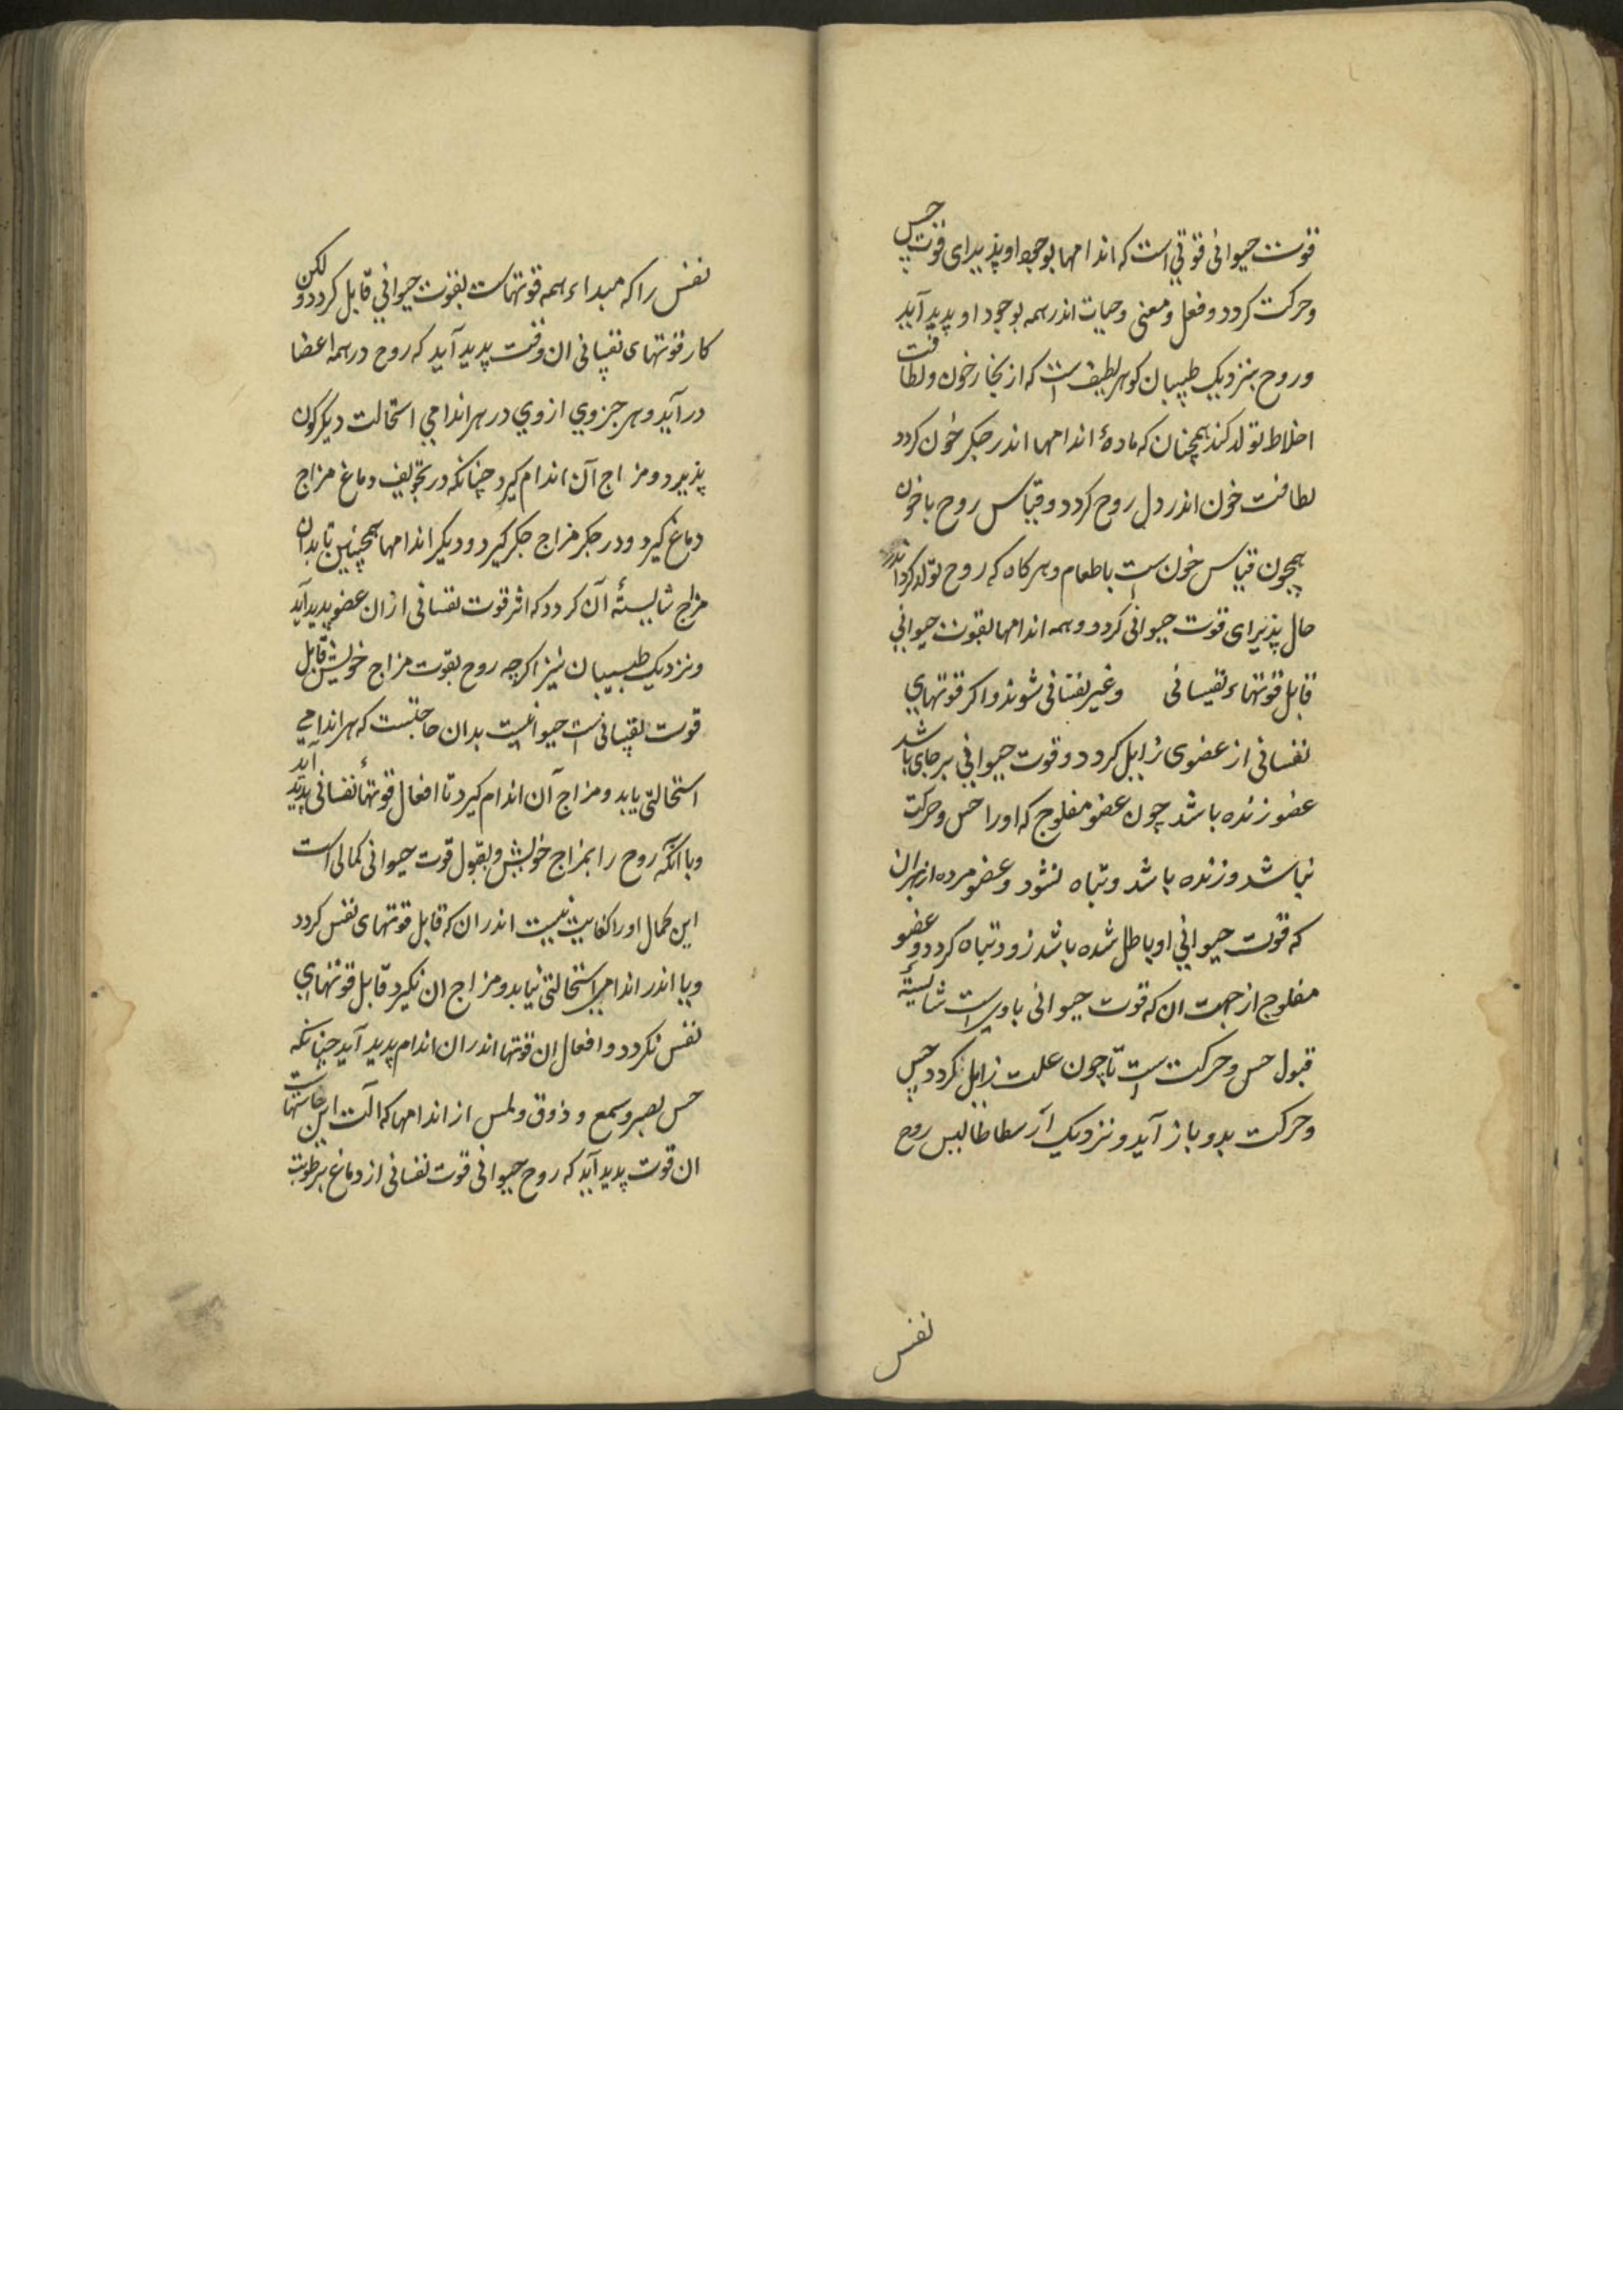 قوت حیوانی قوتی است که اندامها بوجود او پذیرای قوت حس
وحرکت کردد وفعل ومعنی وحیات اندر همه بوجود او پدید آید
وروح بنزدیک طبیبان کوهر لطیف است که از بخار خون ولطافت
اخلاط تولد کند همچنان که ماده اندامها اندر جکر خون کردد
لطافت خون اندر دل روح کردد وقیاس روح باخون
همچون قیاس خون است باطعام وهرکاه که روح تولد کرد اندر
حال پذیرای قوت حیوانی کردد وهمه اندامها بقوت حیوانی
قابل قوتهاء نفسانی وغیر نفسانی شوند واکر قوتهای
نفسانی از عضوی زایل کردد وقوت حیوانی برجای باشد
عضو زنده باشد چون عضو مفلوج که اورا حس وحرکت
نباشد وزنده باشد وتباه نشود وعضو مرده از بهر ان
که قوت حیوانی او باطل شده باشد زود تباه کردد وعضو
مفلوج از جهت ان که قوت حیوانی باوی است شایستۀ
قبول حس وحرکت است تا چون علت زایل کردد حس
وحرکت بدو باز آید ونزدیک ارسطاطالیس روح
نفس
نفس را که مبداء همه قوتهاست بقوت حیوانی قابل کردد ولکن
کار قوتهای نفسانی ان وقت پدید آید که روح در همه اعضا
در آید وهر جزوی از وی در هر اندامی استحالت دیکرکون
پذیرد ومزاج آن اندام کیرد چنانکه در تجویف دماغ مزاج
دماغ کیرد ودر جکر مزاج جکر کیرد ودیکر اندامها همچنین تا بدان
مزاج شایستۀ آن کردد که اثر قوت نفسانی از ان عضو پدید آید
ونزدیک طبیبان نیز اکرچه روح بقوت مزاج خویش قابل
قوت نفسانی است حیوانیت بدان حاجتست که هر اندامی
استحالتی یابد ومزاج آن اندام کیرد تا افعال قوتهاء نفسانی پدید آید
وبا انکه روح را بمزاج خویش وبقبول قوت حیوانی کمالی است
این کمال اورا کفایت نیست اندر ان که قابل قوتهای نفس کردد
وبا اندر اندامی استحالتی نیابد ومزاج ان نکیرد قابل قوتهای
نفس نکردد وافعال ان قوتها اندر ان اندام پدید آید چنانکه
حس بصر وسمع وذوق ولمس از اندامها که الت این حاستهاست
ان قوت پدید آید که روح حیوانی قوت نفسانی از دماغ برطوبت